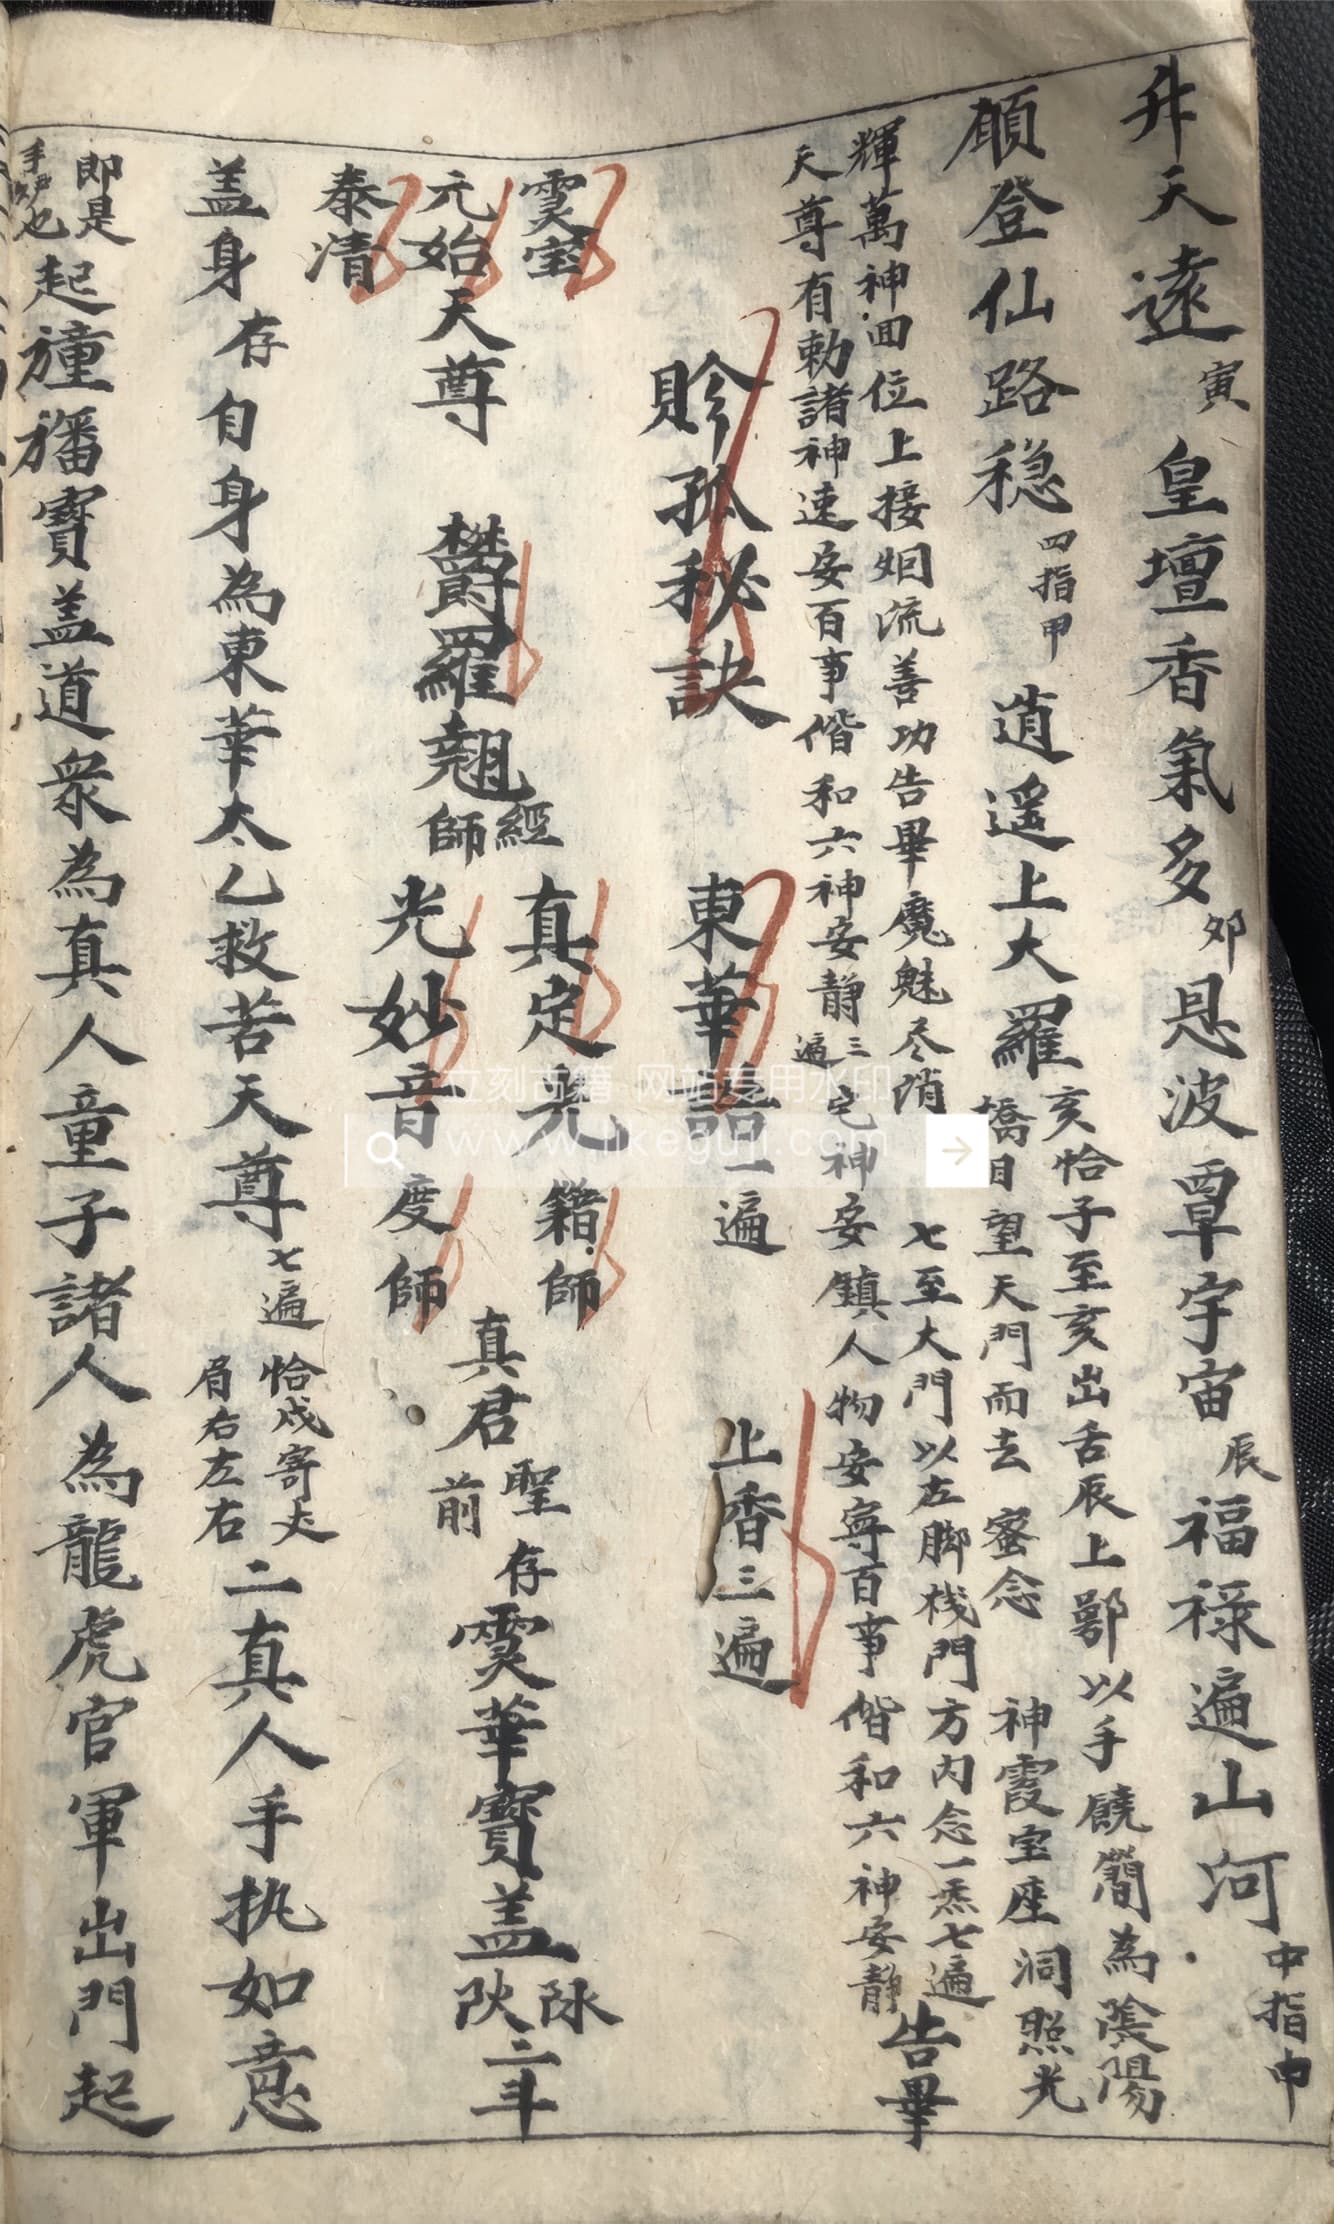 升天遠寅皇壇香氣多夘恳波覃宇宙辰福禄遍山河中指中
願登仙路稳四指甲逍遥上大羅亥恰子至亥出舌辰上鄂以手饒簡為陰陽
橋目望天門而去蜜念神霞宝座洞照光
輝萬神囬位上接姻流善功告畢魔魅尽消七至大門以左脚棧門方内念一炁七遍
天尊有勅諸神速安百事偕和六神安静三遍宅神安鎮人物安寧百事偕和六神安静告畢
賖孤秘訣東華誥一遍止香三遍
雲宝
元始天尊欎羅翹
泰清
經師真定光籍師
光妙音度師
真君聖前存雲華寶盖二斗
盖身存自身為東華太乙救苦天尊七遍恰戍寄丈肩右左右二真人手执如意
即是手炉也起幢旛寶盖道衆為真人童子諸人為龍虎官軍出門起
立刻古籍 网站专用水印
www.likeguji.com